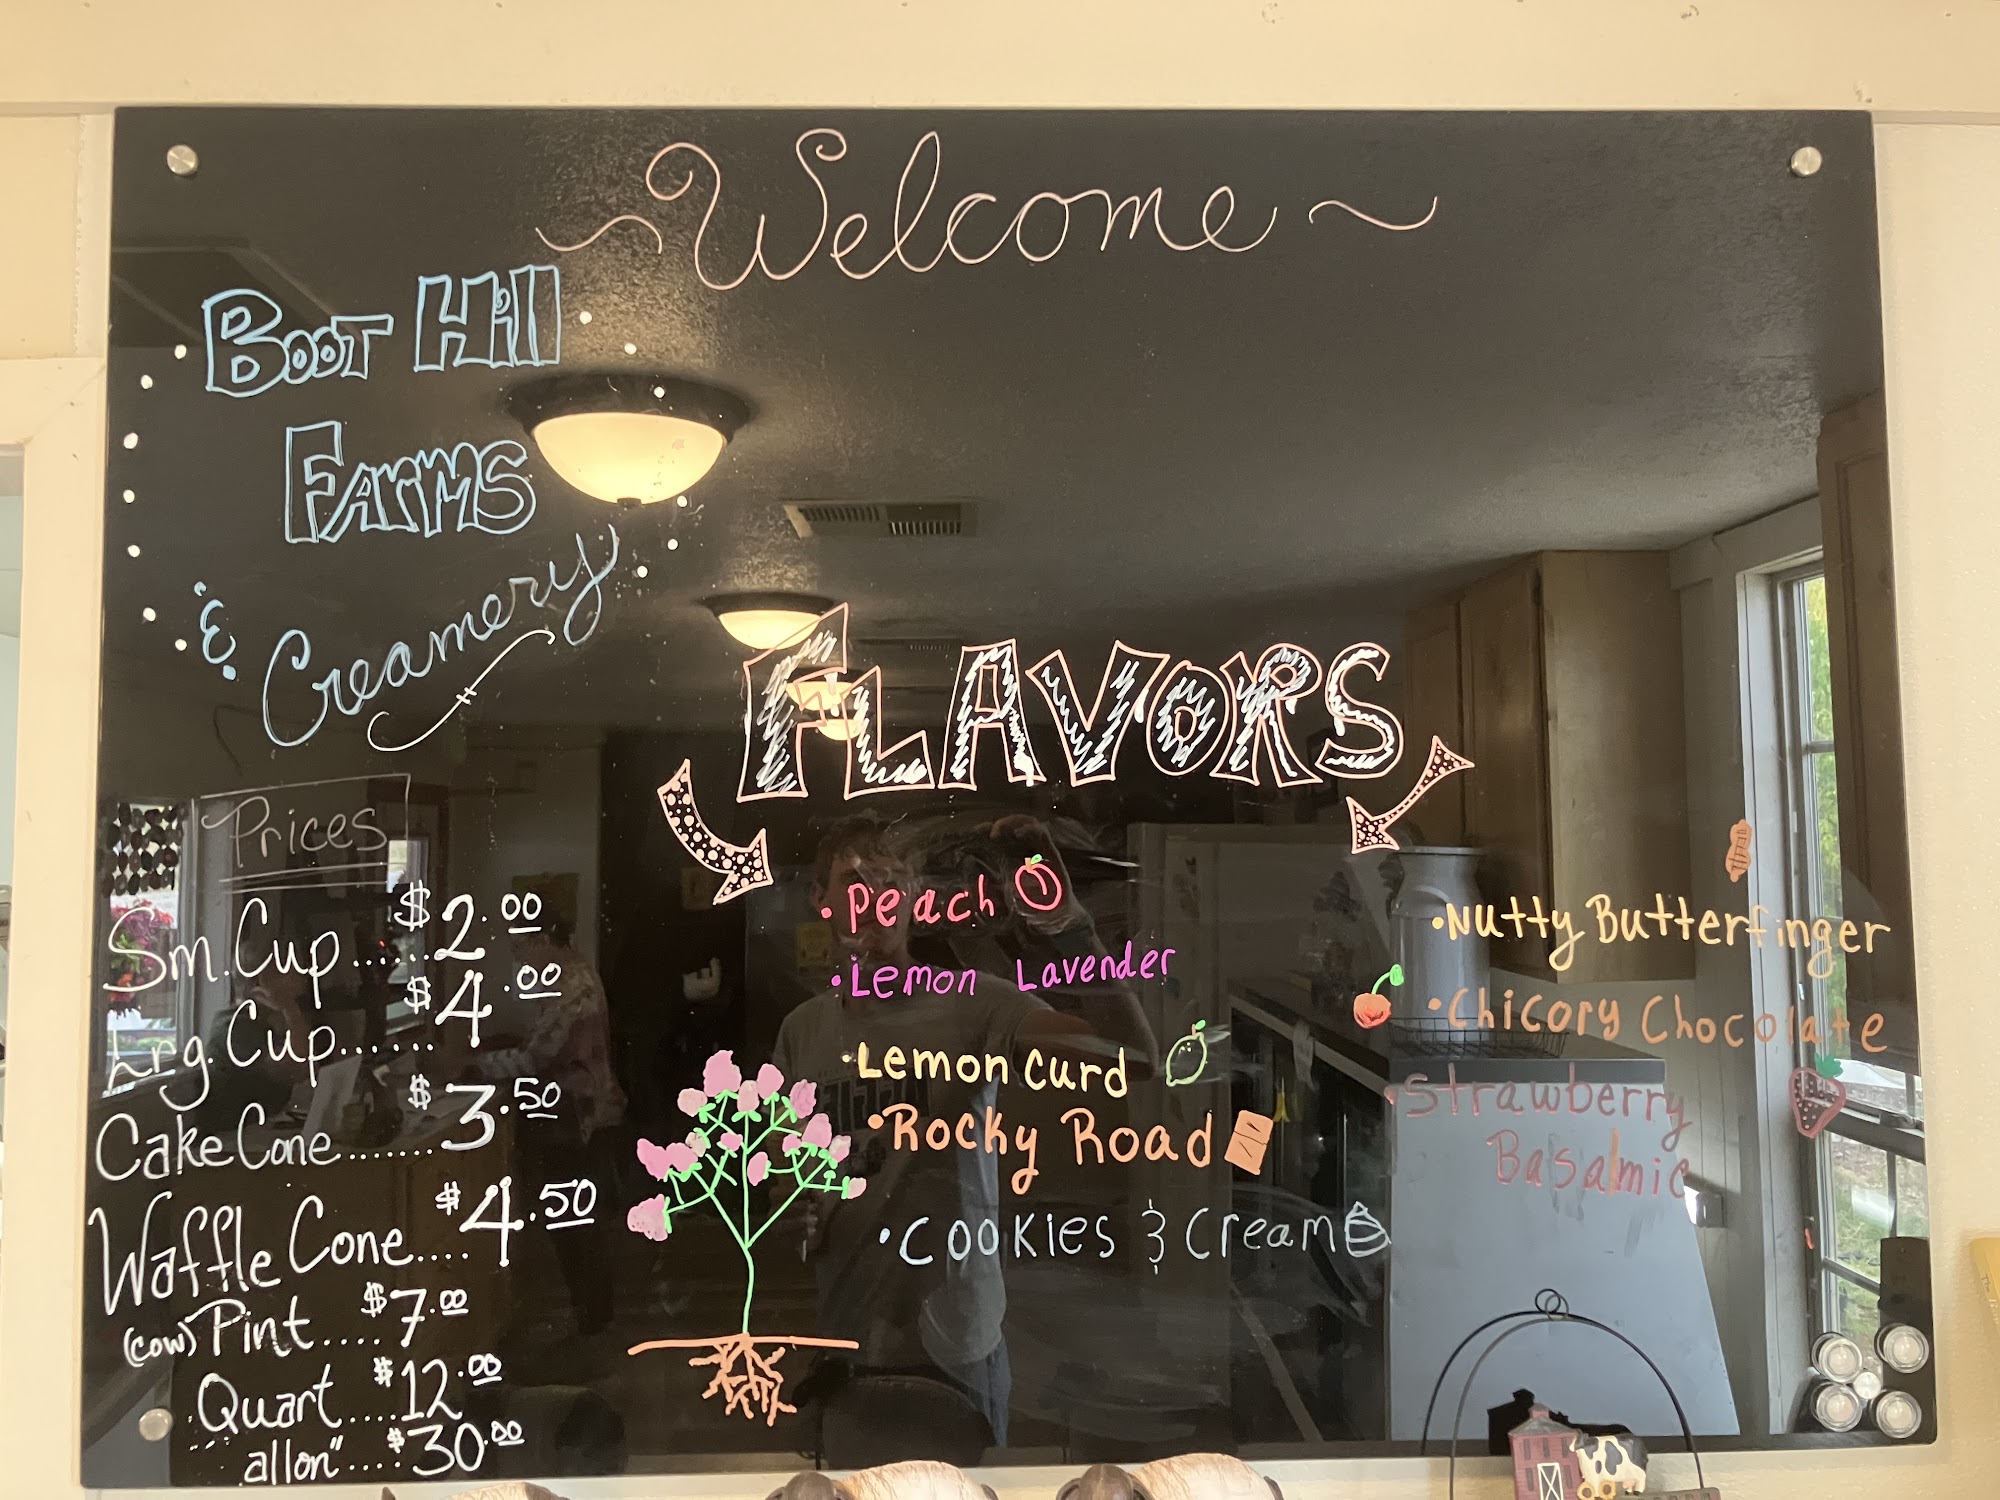 ~Welcome~
Boot Hill
Farms
& Creamery
Prices
Sm. Cup...... $2.00
Lrg. Cup...... $4.00
Cake Cone....... $3.50
Waffle Cone.... $4.50
(cow) Pint.... $7.00
Quart.... $12.00
allon".... $30.00
Flavors
• Peach
• Lemon Lavender
• Lemon Curd
• Rocky Road
• Cookies & Cream
• Nutty Butterfinger
• Chicory Chocolate
• Strawberry
Basalmic